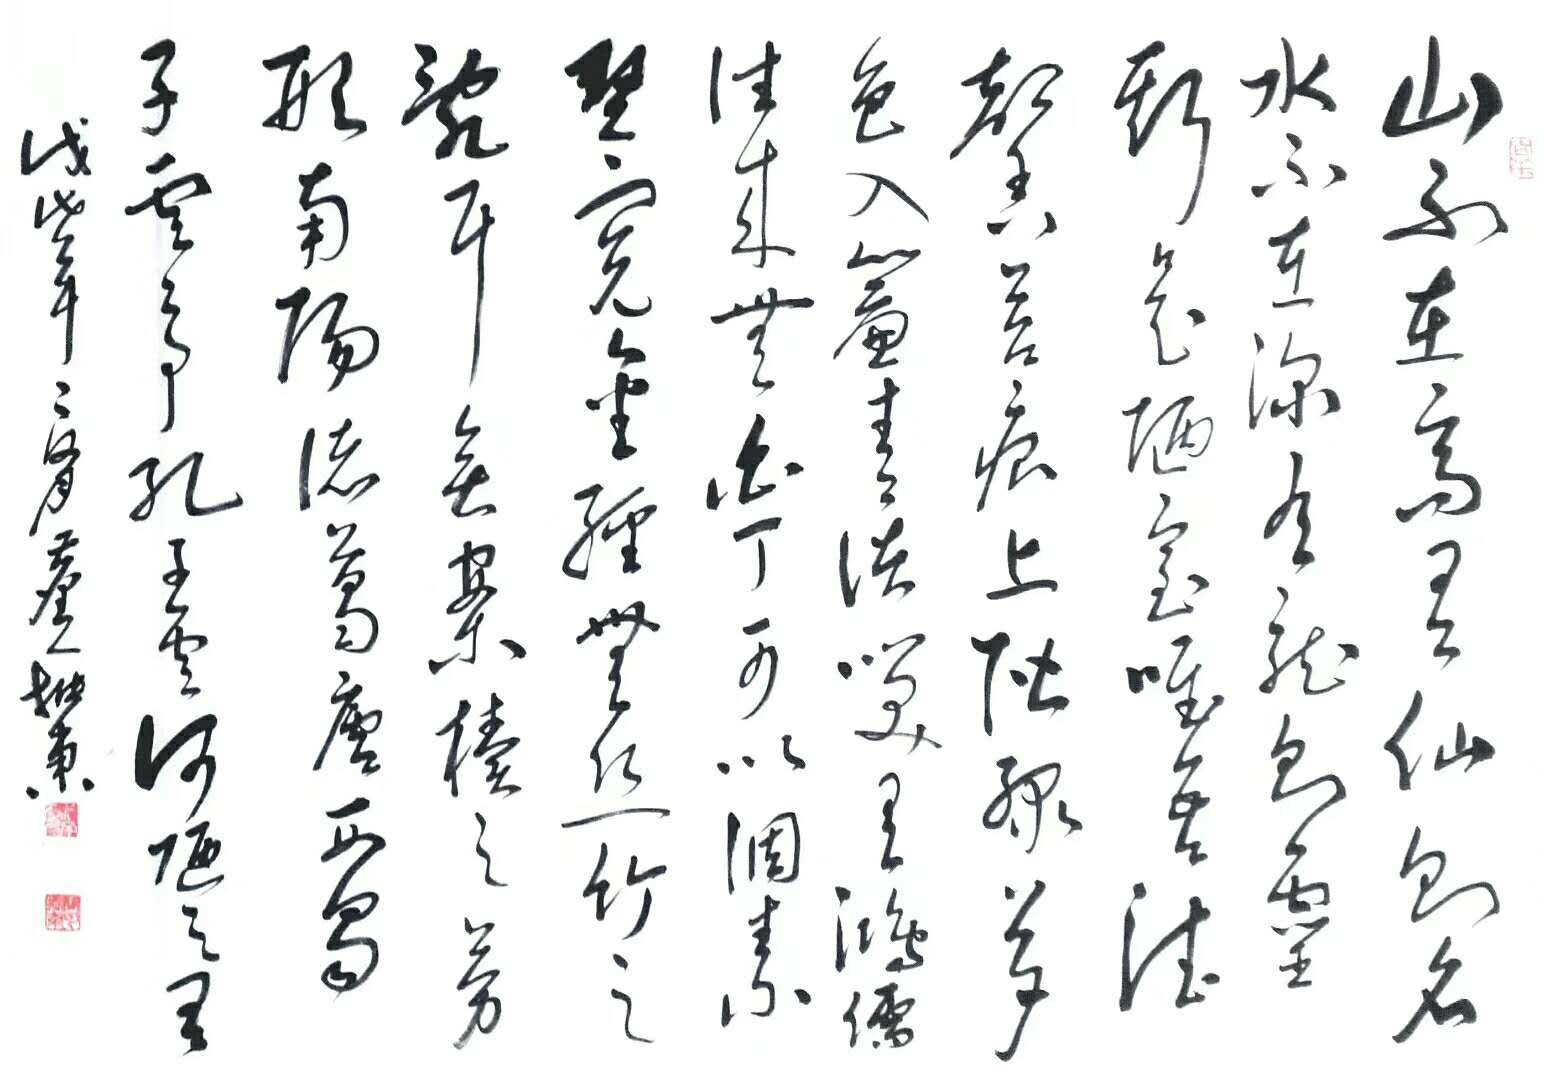 山不在高有仙則名
水不在深有龍則靈
斯是陋室唯吾德
馨苔痕上階綠草
色入簾青談笑有鴻儒
往來無白丁可以調素
琴閱金經無絲竹之
亂耳無案牘之勞
形南陽諸葛廬西蜀
子雲亭孔子雲何陋之有
戊戌年